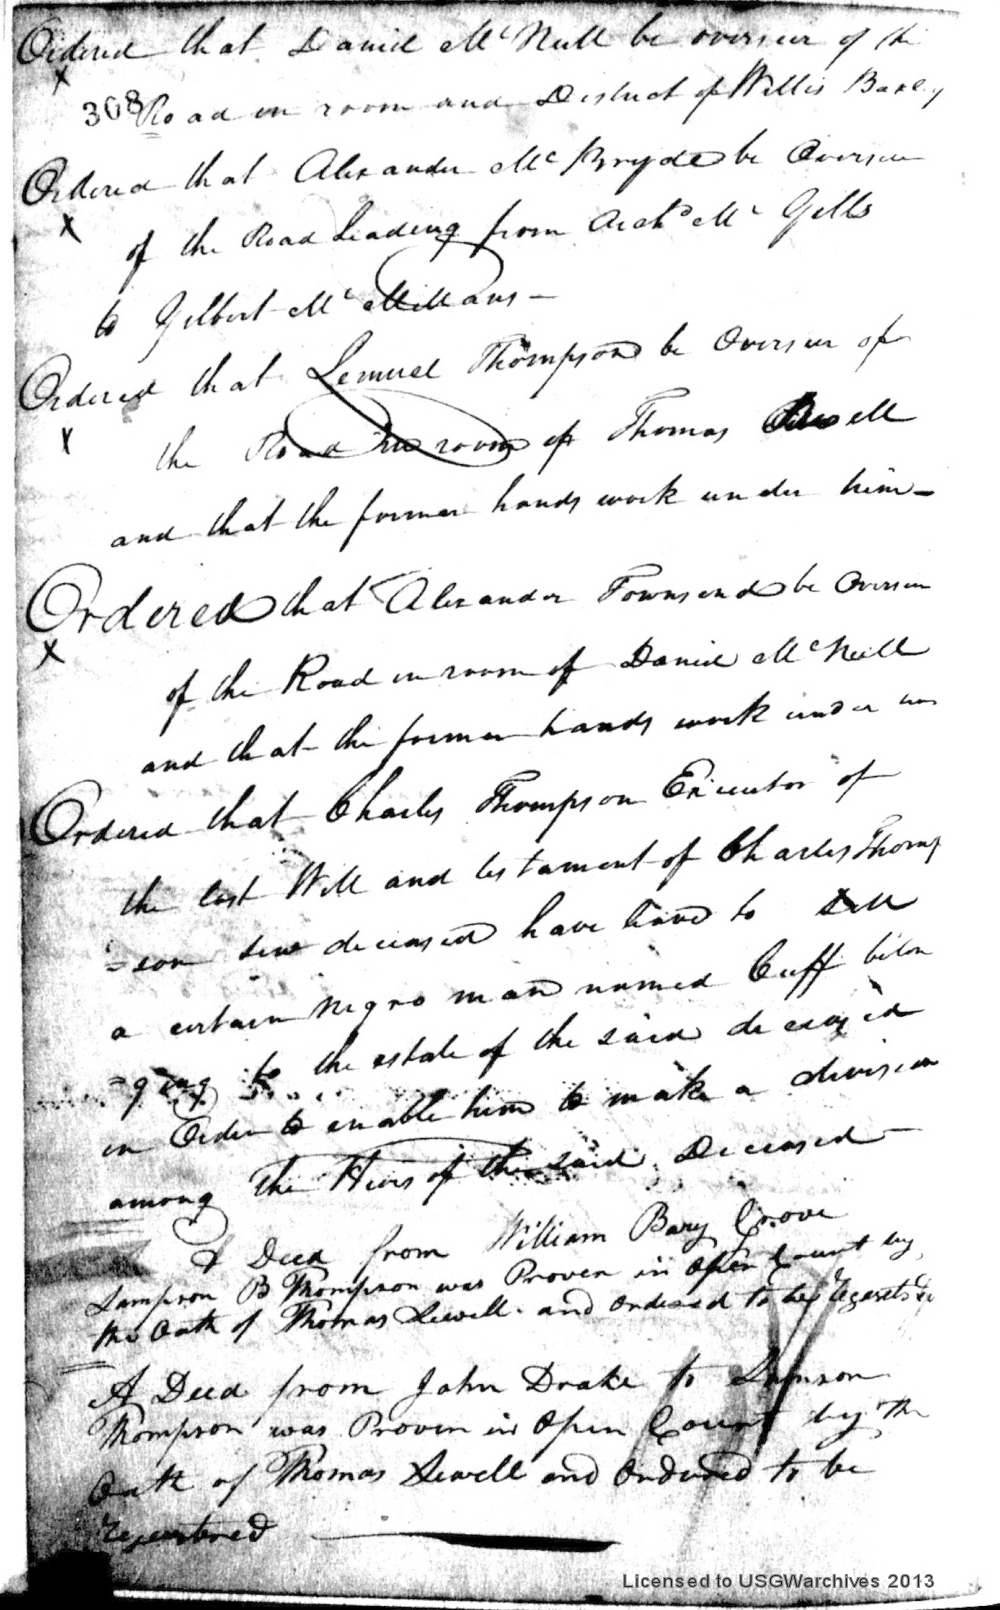 Ordered that Daniel McNeill be overseer of the
368 Road in room and District of Willis Baxley
Ordered that Alexander McBryde be Overseer
of the Road Leading from Archd McGills
to Gilbert McMillans -
Ordered that Lemuel Thompson be Overseer of
the Road in room of Thomas Sewell
and that the former hands work under him -
Ordered that Alexander Townsend be Overseer
of the Road in room of Daniel McNeill
and that the former hands work under
Ordered that Charles Thompson Executor of
the last Will and testament of Charles Thomp
=son Senr deceased have leave to Sell
a certain Negro man named Cuff belon
=ging to the estate of the said deceased
in Order to enable him to make a division
among the Heirs of the said Deceased -
A Deed from William Bary Grove
Sampson B Thompson was Proven in Open Court by
the Oath of Thomas Sewell and Ordered to be
A Deed from John Drake to Samson
Thompson was Proven in Open Court by The
Oath of Thomas Sewell and Ordered to be
registered
Licensed to USGWarchives 2013